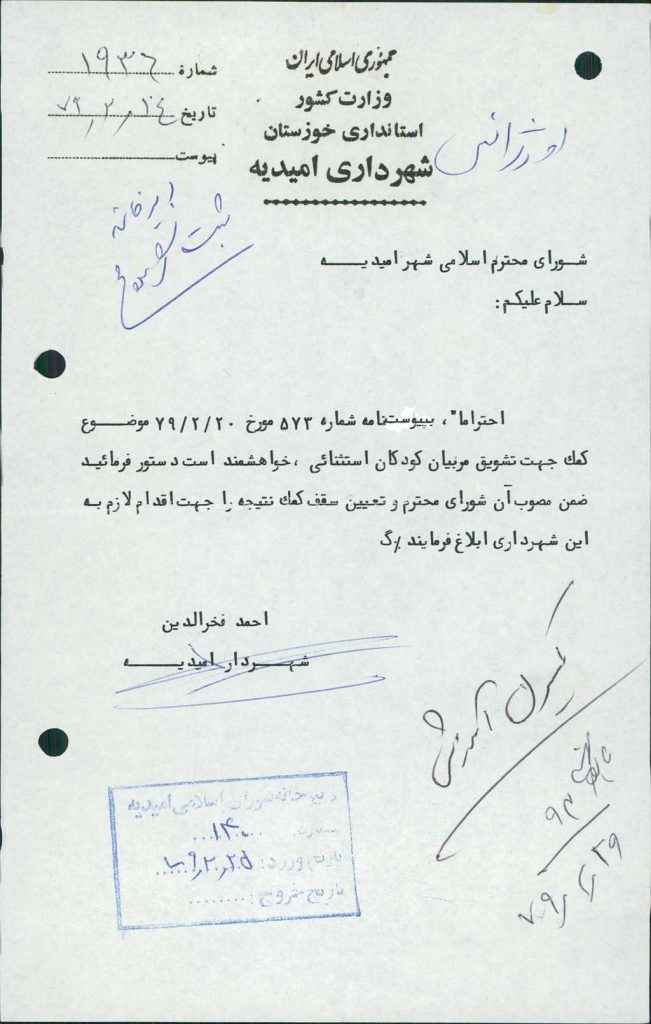 جمهوری اسلامی ایران
وزارت کشور
استانداری خوزستان
شهرداری امیدیه
شماره ۱۹۳۶
تاریخ ۷۹٫۲٫۲۴
پیوست
اورژانس
دبیرخانه
ثبت
شورای محترم اسلامی شهر امیدیه
سلام علیکم:
احتراما"، بپیوست نامه شماره ۵۷۳ مورخ ۷۹/۲/۲۰ موضوع
کمك جهت تشویق مربیان کودکان استثنائی ، خواهشمند است دستور فرمائید
ضمن مصوب آن شورای محترم و تعیین سقف کمك نتیجه را جهت اقدام لازم به
این شهرداری ابلاغ فرمایند
احمد فخرالدین
شهردار امیدیه
دبیرخانه شورای اسلامی امیدیه
شماره: ۱۴۰
تاریخ ورود: ۷۹٫۲٫۲۵
تاریخ خروج: